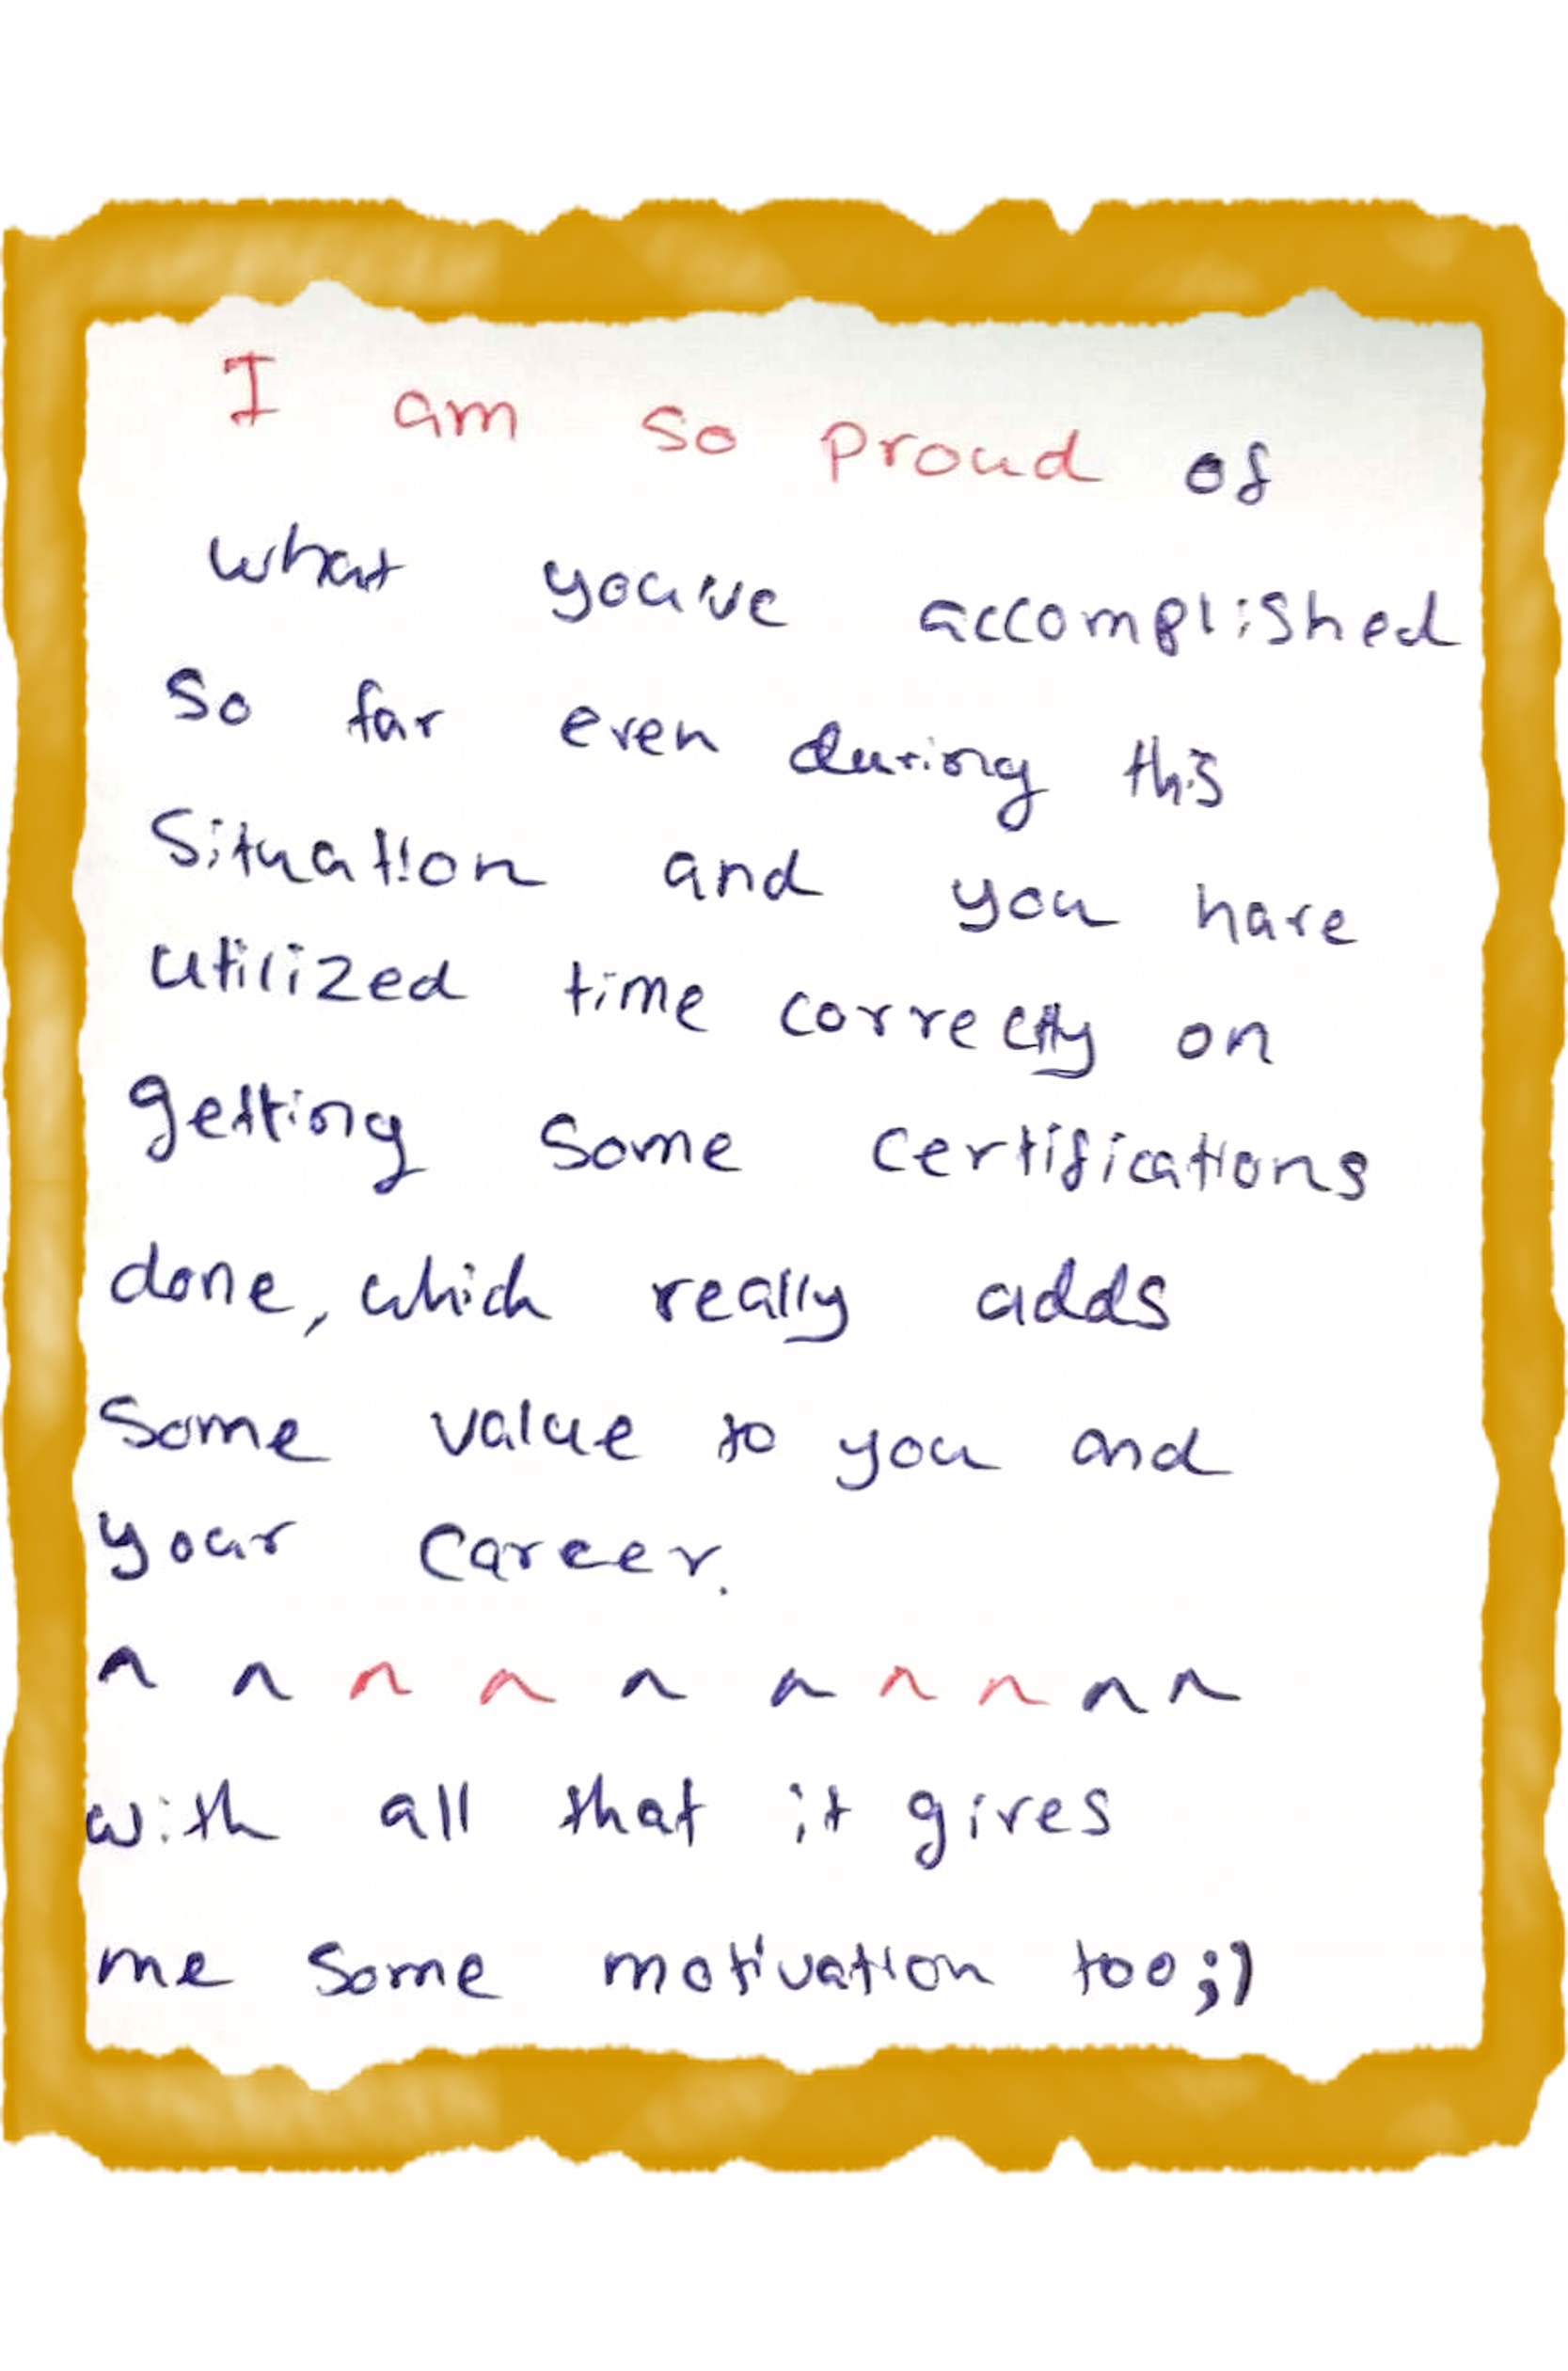 I am so proud of
what you've accomplished
so far even during this
situation and you have
utilized time correctly on
getting some certifications
done, which really adds
some value to you and
your career.
^ ^ ^ ^ ^ ^ ^ ^ ^ ^
with all that it gives
me some motivation too;)